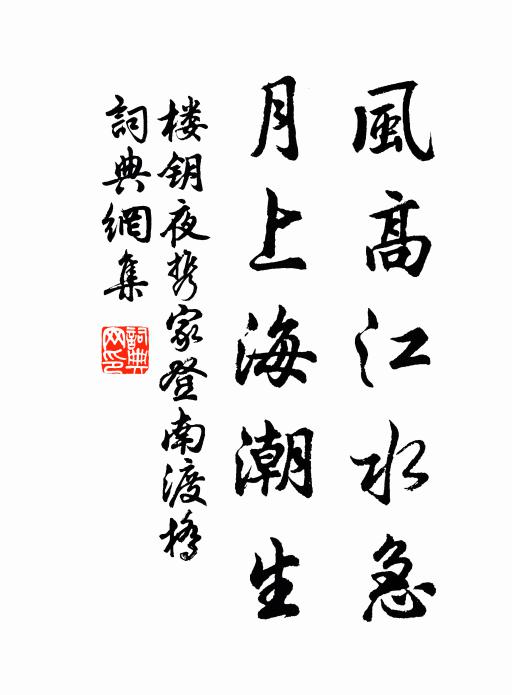 風高江水急
月上海潮生
楼钥夜携家登南渡橋
詞典網集
詞典
网印